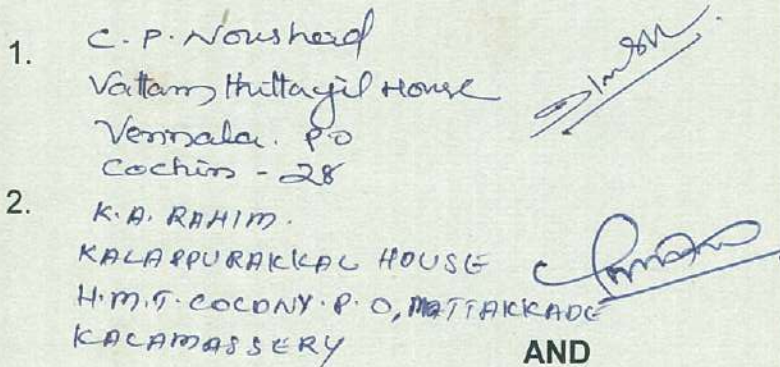 1. C.P. Noushad
Vattam Thittayil House
Vennala. PO
Cochin - 28
2. K.A. RAHIM.
KALAPPURAKKAL HOUSE
H.M.T. COLONY. P.O, MATTAKKADE
KALAMASSERY
AND